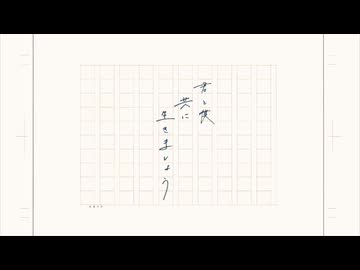 君と僕
共に
生きましょう